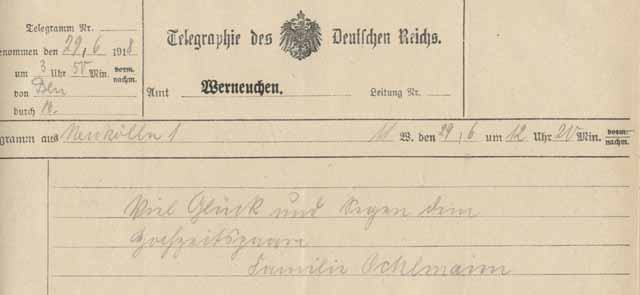 Telegramm Nr.
Telegraphie des Deutschen Reichs.
enommen den 29, 6 1918
um 3 Uhr 50 Min. vorm. nachm.
von Bln
Amt Werneuchen. Leitung Nr.
durch
gramm aus Neukölln 1 11 W. den 29, 6 um 12 Uhr 20 Min. vorm. nachm.
Viel Glück und Segen dem
Hochzeitspaare
Familie Ochlmann